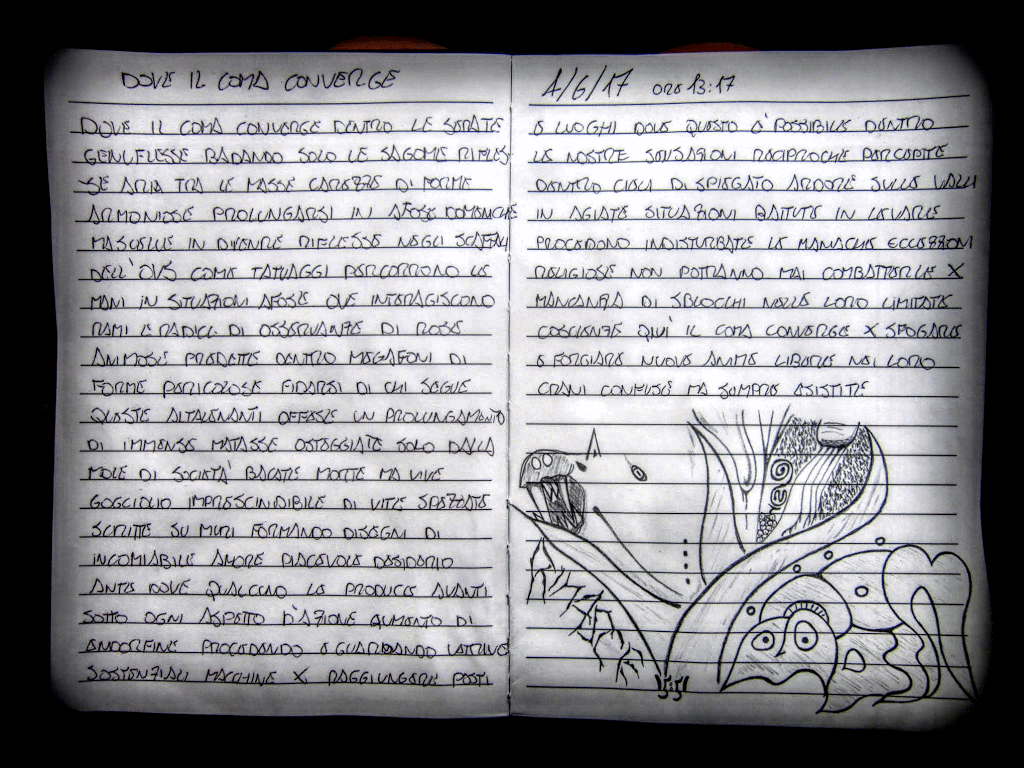 DOVE IL COMA CONVERGE
DOVE IL COMA CONVERGE DENTRO LE SERATE
GENUFLESSE BADANDO SOLO LE SAGOME RIFLES
SE ARIA TRA LE MASSE CAREZZE DI FORME
ARMONIOSE PROLUNGARSI IN AFOSE DOMENICHE
MASCELLE IN RIFLESSE NEGLI SCAFFALI
DELL'OVS COME TATUAGGI PERCORRONO LE
MANI IN SITUAZIONI AFOSE OVE INTERAGISCONO
RAMI E RADICI DI OSSERVANZE DI ROSE
ANIMOSE PREDETTE DENTRO MEGAFONI DI
FORME PERICOLOSE FIDARSI DI CHI SEGUE
QUESTE ALTALENANTI OFFESE UN PROLUNGAMENTO
DI IMMENSE MATASSE OSTEGGIATE SOLO DALLA
MOLE DI SOCIETA' BACATE MORTE MA VIVE
GOCCIOLIO IMPRESCINDIBILE DI VITE SPEZZATE
SCRITTE SU MURI FORMANDO DISEGNI DI
INCOMIABILE AMORE PIACEVOLE DESIDERIO
ANTE DOVE QUALCUNO LE PRODUCE AVANTI
SOTTO OGNI ASPETTO D'AZIONE AUMENTO DI
ENDORFINE PROCEDENDO E GUARDANDO LATRINE
SOSTENZIALI MACCHINE X RAGGIUNGERE POSTI
1/6/17 ORE 13:17
E LUOGHI DOVE QUESTO E' POSSIBILE DENTRO
LE NOSTRE SENSAZIONI RECIPROCHE PERCEPITE
DENTRO CIELI DI SPIEGATO ARDORE SULLE VALLI
IN AGIATE SITUAZIONI BATTUTE IN LEVARE
PROCEDONO INDISTURBATE LE MANACHE ECCEZIONI
RELIGIOSE NON POTRANNO MAI COMBATTERLE X
MANCANZA DI SBLOCCHI NELLE LORO LIMITATE
COSCIENZE QUI' IL COMA CONVERGE X SFOGARE
E FORGIARE NUOVE ANIME LIBERE NEI LORO
CRANI CONFUSE MA SEMPRE ESISTITE